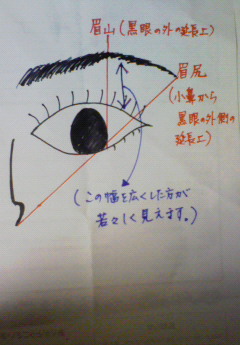 眉山(黒眼の外の延長上)
眉尻
(小鼻から
黒眼の外側の
延長上)
(この幅を広くした方が
若々しく見えます。)